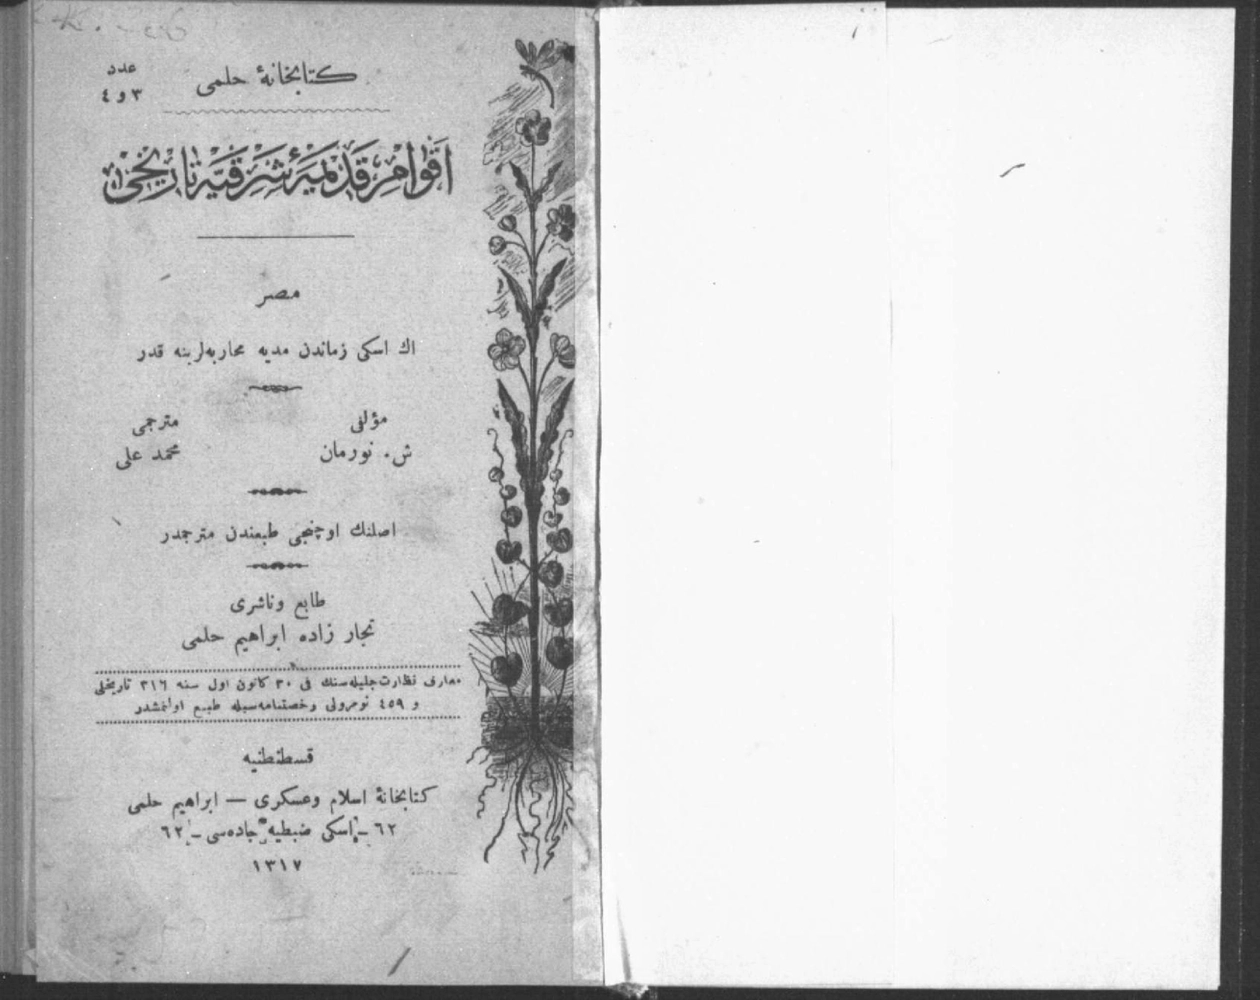 كتابخانهٔ حلمی
عدد
٣ و ٤
اَقْوَامِ قَدِيمَهٔ شَرْقِيَّه تَارِيخْى
مصر
اك اسكی زماندن مديه محاربه‌لرينه قدر
مؤلفی
ش. نورمان
مترجمی
محمد علی
اصلنك اوچنجی طبعندن مترجمدر
طابع وناشری
تجار زاده ابراهيم حلمی
معارف نظارت جليله‌سنك فی ٣٠ كانون اول سنه ٣١٦ تاريخلی
و ٤٥٩ نومرولی رخصتنامه‌سيله طبع اولنمشدر
قسطنطنيه
كتابخانهٔ اسلام وعسكری — ابراهيم حلمی
٦٢ – اسكی ضبطيه جاده‌سی – ٦٢
١٣١٧